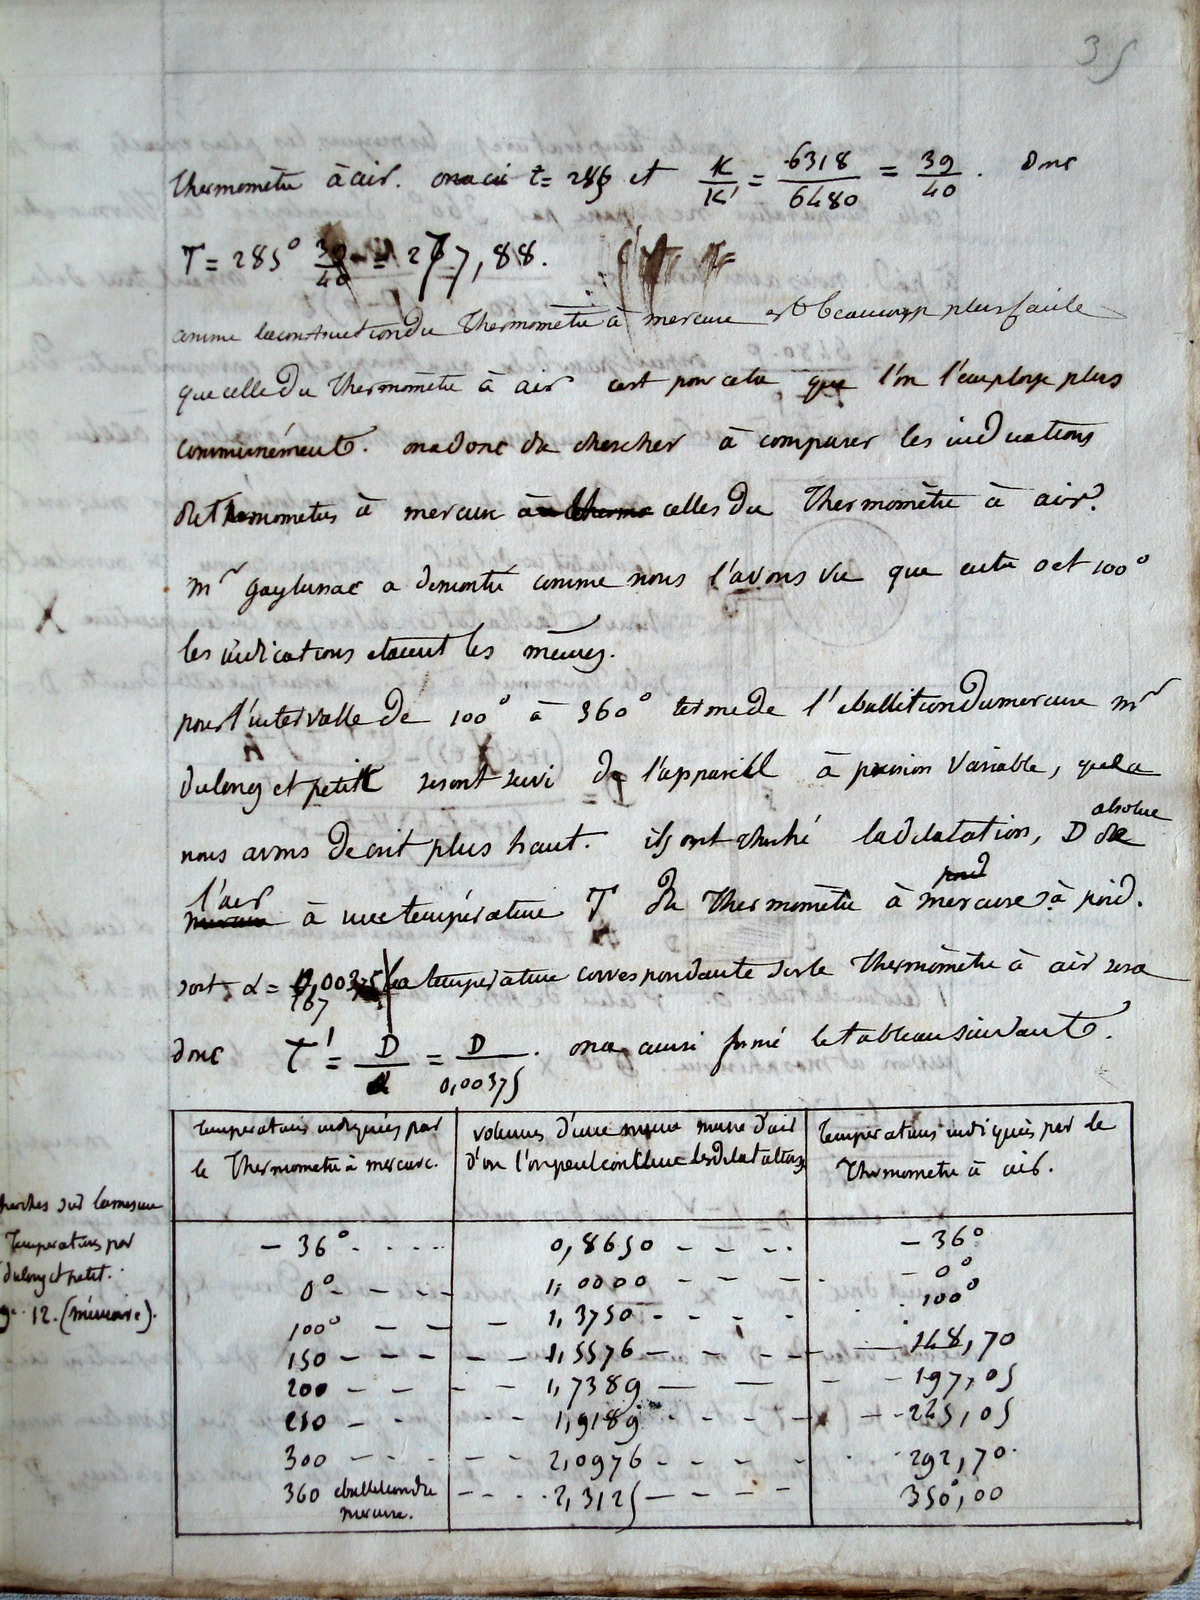 35
thermometre à air. on a ici t = 285 et K/K' = 6318/6480 = 39/40. donc
T = 285° 39/40 = 277,88.
comme la construction du thermometre à mercure est beaucoup plus facile
que celle du thermometre à air c'est pour cela que l'on l'employe plus
communément. on a donc du chercher à comparer les indications
des thermometres à mercure à celles du thermomètre à air.
mr gaylussac a demontré comme nous l'avons vu que entre 0 et 100°
les indications etaient les mêmes.
pour l'intervalle de 100° à 360° terme de l'ebullition du mercure mr
dulong et petit se sont servi de l'appareil à pression variable, que
nous avons decrit plus haut. ils ont cherché la dilatation, D absolue de
l'air à une température T du thermomètre à mercure à poid.
soit α = 0,00375 la température correspondante sur le thermomètre à air sera
donc T' = D/α = D/0,00375. on a ainsi formé le tableau suivant.
temperatures indiquées par
le thermometre à mercure.
volumes d'une même masse d'air
d'ou l'on peut conclure les dilatations
temperatures indiquées par le
thermometre à air.
- 36° . . . . 0,8650 - - - . - 36°
0° - - - - 1,0000 - - - - 0°
100° - - - 1,3750 - - - - 100°
150 - - - - - 1,5576 - - - - - 148,70
200 - - - - 1,7389 - - - - 197,05
250 - - - - 1,9189 - - - - - 245,05
300 - - - - 2,0976 - - - - 292,70
360 ebullition du - - - 2,3125 - - - - 350°,00
mercure.
herches sur la mesure
temperatures par
dulong et petit.
12. (mémoire).